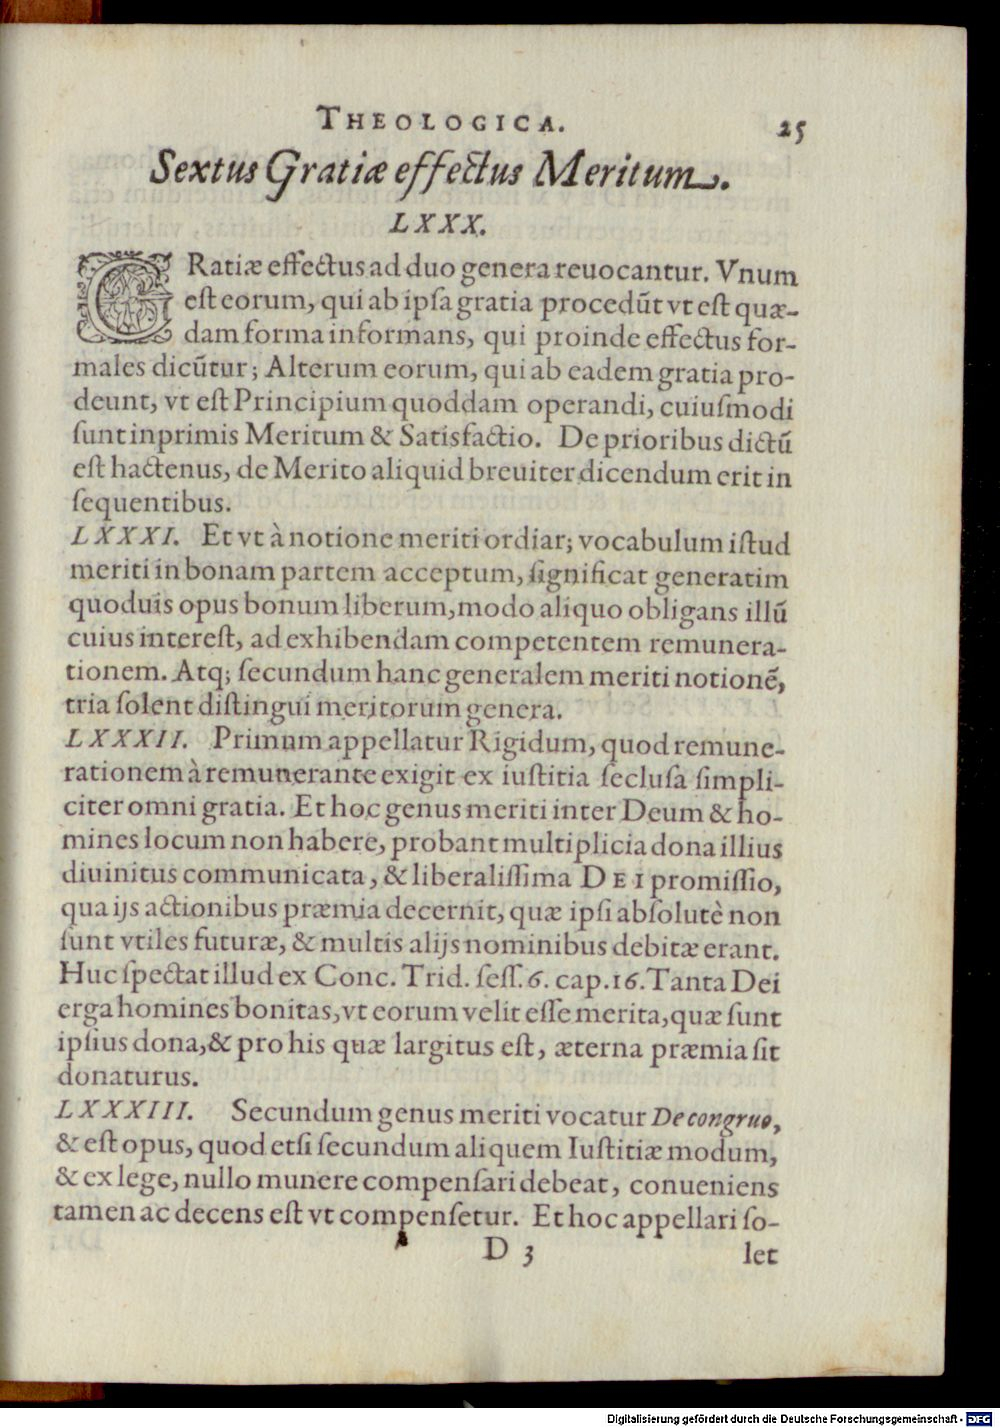 THEOLOGICA. 25
Sextus Gratiæ effectus Meritum.
LXXX.
GRatiæ effectus ad duo genera reuocantur. Vnum
est eorum, qui ab ipsa gratia procedũt vt est quæ-
dam forma informans, qui proinde effectus for-
males dicũtur; Alterum eorum, qui ab eadem gratia pro-
deunt, vt est Principium quoddam operandi, cuiusmodi
sunt inprimis Meritum & Satisfactio. De prioribus dictũ
est hactenus, de Merito aliquid breuiter dicendum erit in
sequentibus.
LXXXI. Et vt à notione meriti ordiar; vocabulum istud
meriti in bonam partem acceptum, significat generatim
quoduis opus bonum liberum, modo aliquo obligans illũ
cuius interest, ad exhibendam competentem remunera-
tionem. Atq; secundum hanc generalem meriti notionẽ,
tria solent distingui meritorum genera.
LXXXII. Primum appellatur Rigidum, quod remune-
rationem à remunerante exigit ex iustitia seclusa simpli-
citer omni gratia. Et hoc genus meriti inter Deum & ho-
mines locum non habere, probant multiplicia dona illius
diuinitus communicata, & liberalissima DEI promissio,
qua ijs actionibus præmia decernit, quæ ipsi absolutè non
sunt vtiles futuræ, & multis alijs nominibus debitæ erant.
Huc spectat illud ex Conc. Trid. sess. 6. cap. 16. Tanta Dei
erga homines bonitas, vt eorum velit esse merita, quæ sunt
ipsius dona, & pro his quæ largitus est, æterna præmia sit
donaturus.
LXXXIII. Secundum genus meriti vocatur De congruo,
& est opus, quod etsi secundum aliquem Iustitiæ modum,
& ex lege, nullo munere compensari debeat, conueniens
tamen ac decens est vt compensetur. Et hoc appellari so-
D 3 let
Digitalisierung gefördert durch die Deutsche Forschungsgemeinschaft - DFG